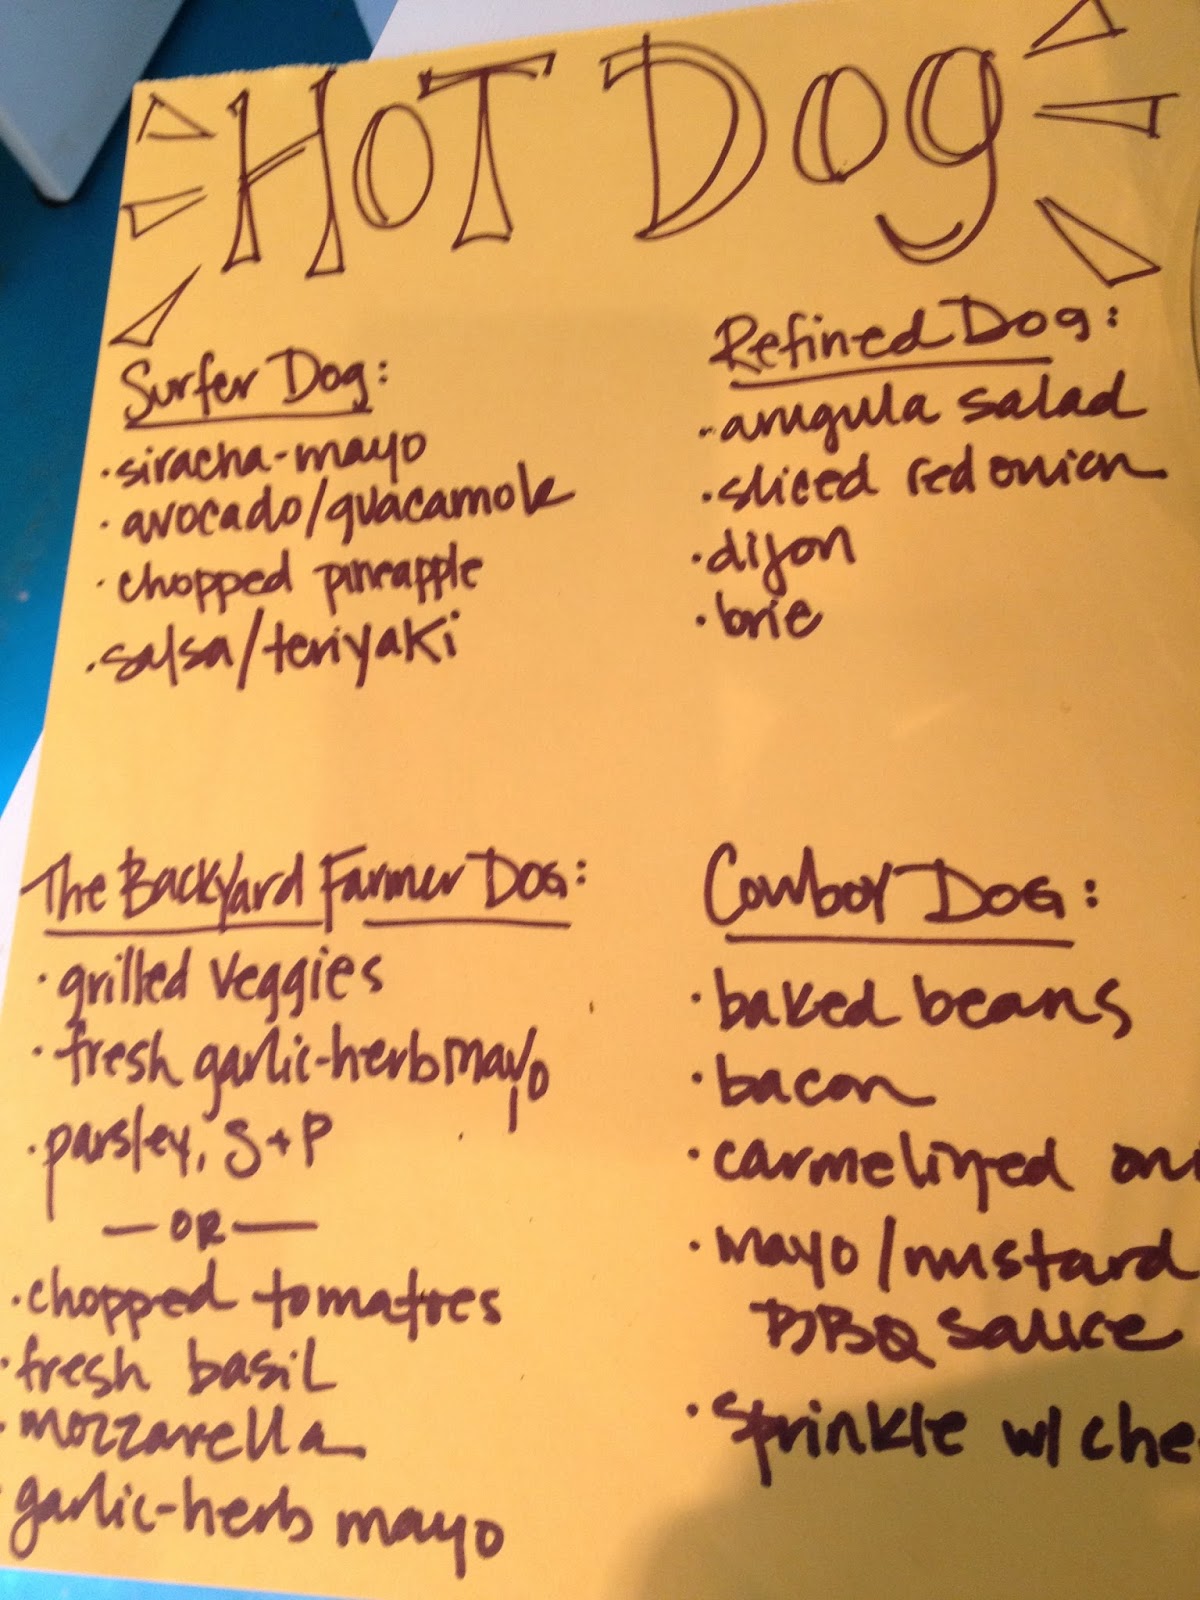 HOT Dog
Surfer Dog:
· siracha-mayo
· avocado/guacamole
· chopped pineapple
· salsa/teriyaki
Refined Dog:
· arugula salad
· sliced red onion
· dijon
· brie
The Backyard Farmer DOG:
· grilled veggies
· fresh garlic-herb mayo
· parsley, S+P
— OR —
· chopped tomatoes
· fresh basil
· mozzarella
· garlic-herb mayo
Cowboy DOG:
· baked beans
· bacon
· carmelized oni
· mayo/mustard
BBQ sauce
· sprinkle w/ che